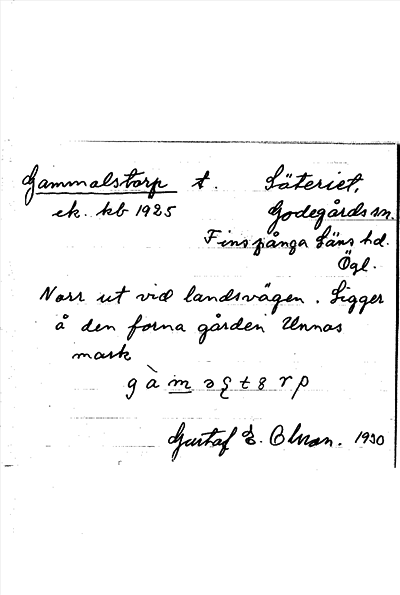 Gammalstorp t. Säteriet,
ek. kb 1925 Godegårds sn.
Finspånga läns hd.
Ögl.
Norr ut vid landsvägen. Ligger
å den forna gården Unnas
mark
Gustaf E. Olsson. 1930